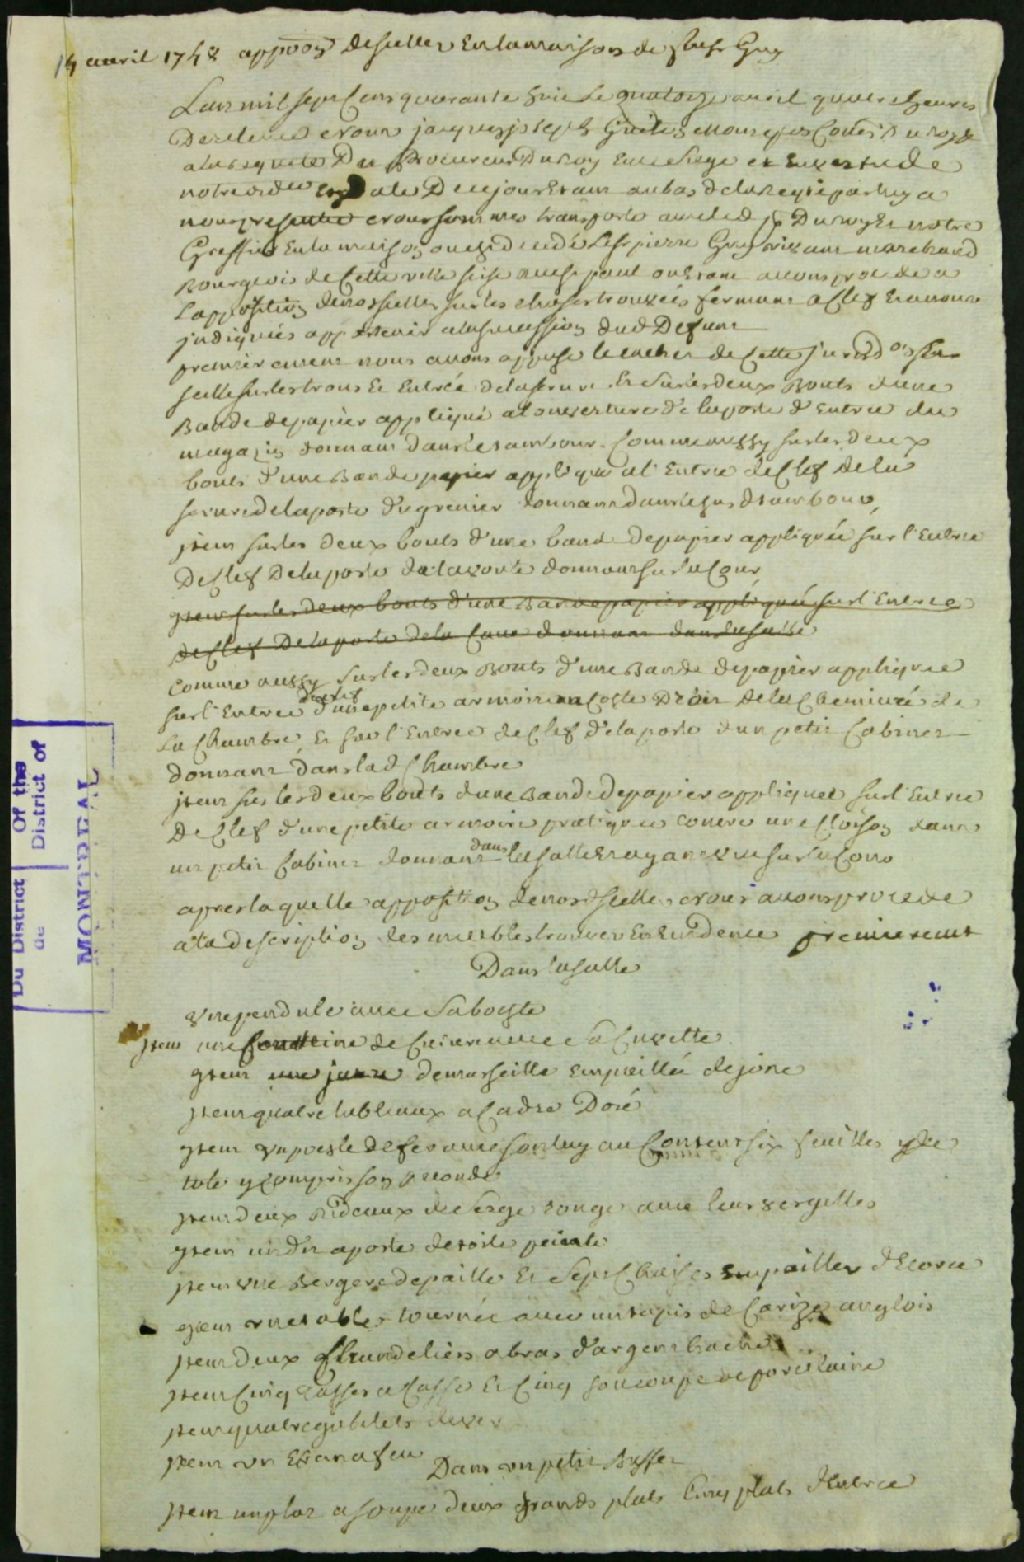 14 avril 1748 appōōn de scellez en la maison de feu Sr Guy
L'an mil sept Cens quarante huit le quatorze avril quatre heures
De relevée Nous jacques joseph Guiton Monrepos Coner Du Roy
a la requete Du Procureur Du Roy en ce siege et en vertu de
notre ordce en Date De ce jour Etant au bas de la req par luy a
nous presentée nous sommes transporté avec led Pr Du roy et notre
Greffier En la maison ou est decedé le Sr pierre Guy vivant marchand
Bourgeois de Cette ville sise rue St paul ou Etant avons procedé a
L'apposition de nos scellez sur les choses trouvées fermant a Clef Et a nous
jndiquées appartenir a la succession dud Defunt
premierement nous avons apposé le cachet de Cette jurisdon
scellé sur les trous Et Entrée de la serrure Et sur les deux Bouts d'une
Bande de papier appliqué a l'ouverture de la porte d'Entrée du
magazin donnant dans le tambour. Comme aussy sur les deux
bouts d'une Bande papier appliqué a l'Entrée de Clef de la
serrure de la porte du grenier donnant dans le tambour
jtem sur les deux bouts d'une bande de papier appliquée sur l'Entrée
De Clef De la porte de la voute donnant sur la Cour
jtem sur les deux bouts d'une Bande papier appliqué sur l'Entrée
de Clef De la porte de la Cave donnant dans la salle
Comme aussy sur les deux Bouts d'une Bande de papier appliquée
sur l'Entrée de Clef d'une petite armoire au Coste Droit de la Cheminée de
La Chambre, Et sur l'Entrée de Clef de la porte d'un petit Cabinet
donnant dans lad Chambre
jtem sur les deux bouts d'une Bande de papier appliquée sur l'Entrée
De Clef d'une petite armoire pratiquée contre une Cloison dans
un petit Cabinet donnant dans la salle Et ayant vue sur la Cour
apres laquelle apposition de nosd scellez nous avons procedé
a la description des meubles trouvez En Evidence premierement
Dans la salle
Une pendule avec sa boeste
jtem une fontaine de Cuivre avec sa Cuvette
jtem une jarre de marseille Empaillée de jonc
jtem quatre tableaux a Cadre Doré
jtem un poesle de fer avec son tuyau Contenant six feuilles de
tole y Compris son Coude
jtem deux Rideaux de serge rouge avec leurs vergettes
jtem un a porte de toile peinte
jtem une Bergere de paille Et sept Chaises Empaillez d'Ecorce
jtem une table tournée avec un tapis de Carizé anglois
jtem deux Chandeliers a bras d'argent haché
jtem Cinq tasses a Caffé Et Cinq soucoupe de porcelaine
jtem quatre gobelets de verre
jtem un Ecran a feu
Dans un petit Buffet
jtem un plat a soupe deux grands plats Cinq plats d'Entrée
Du District
de
Of the
District of
MONTREAL